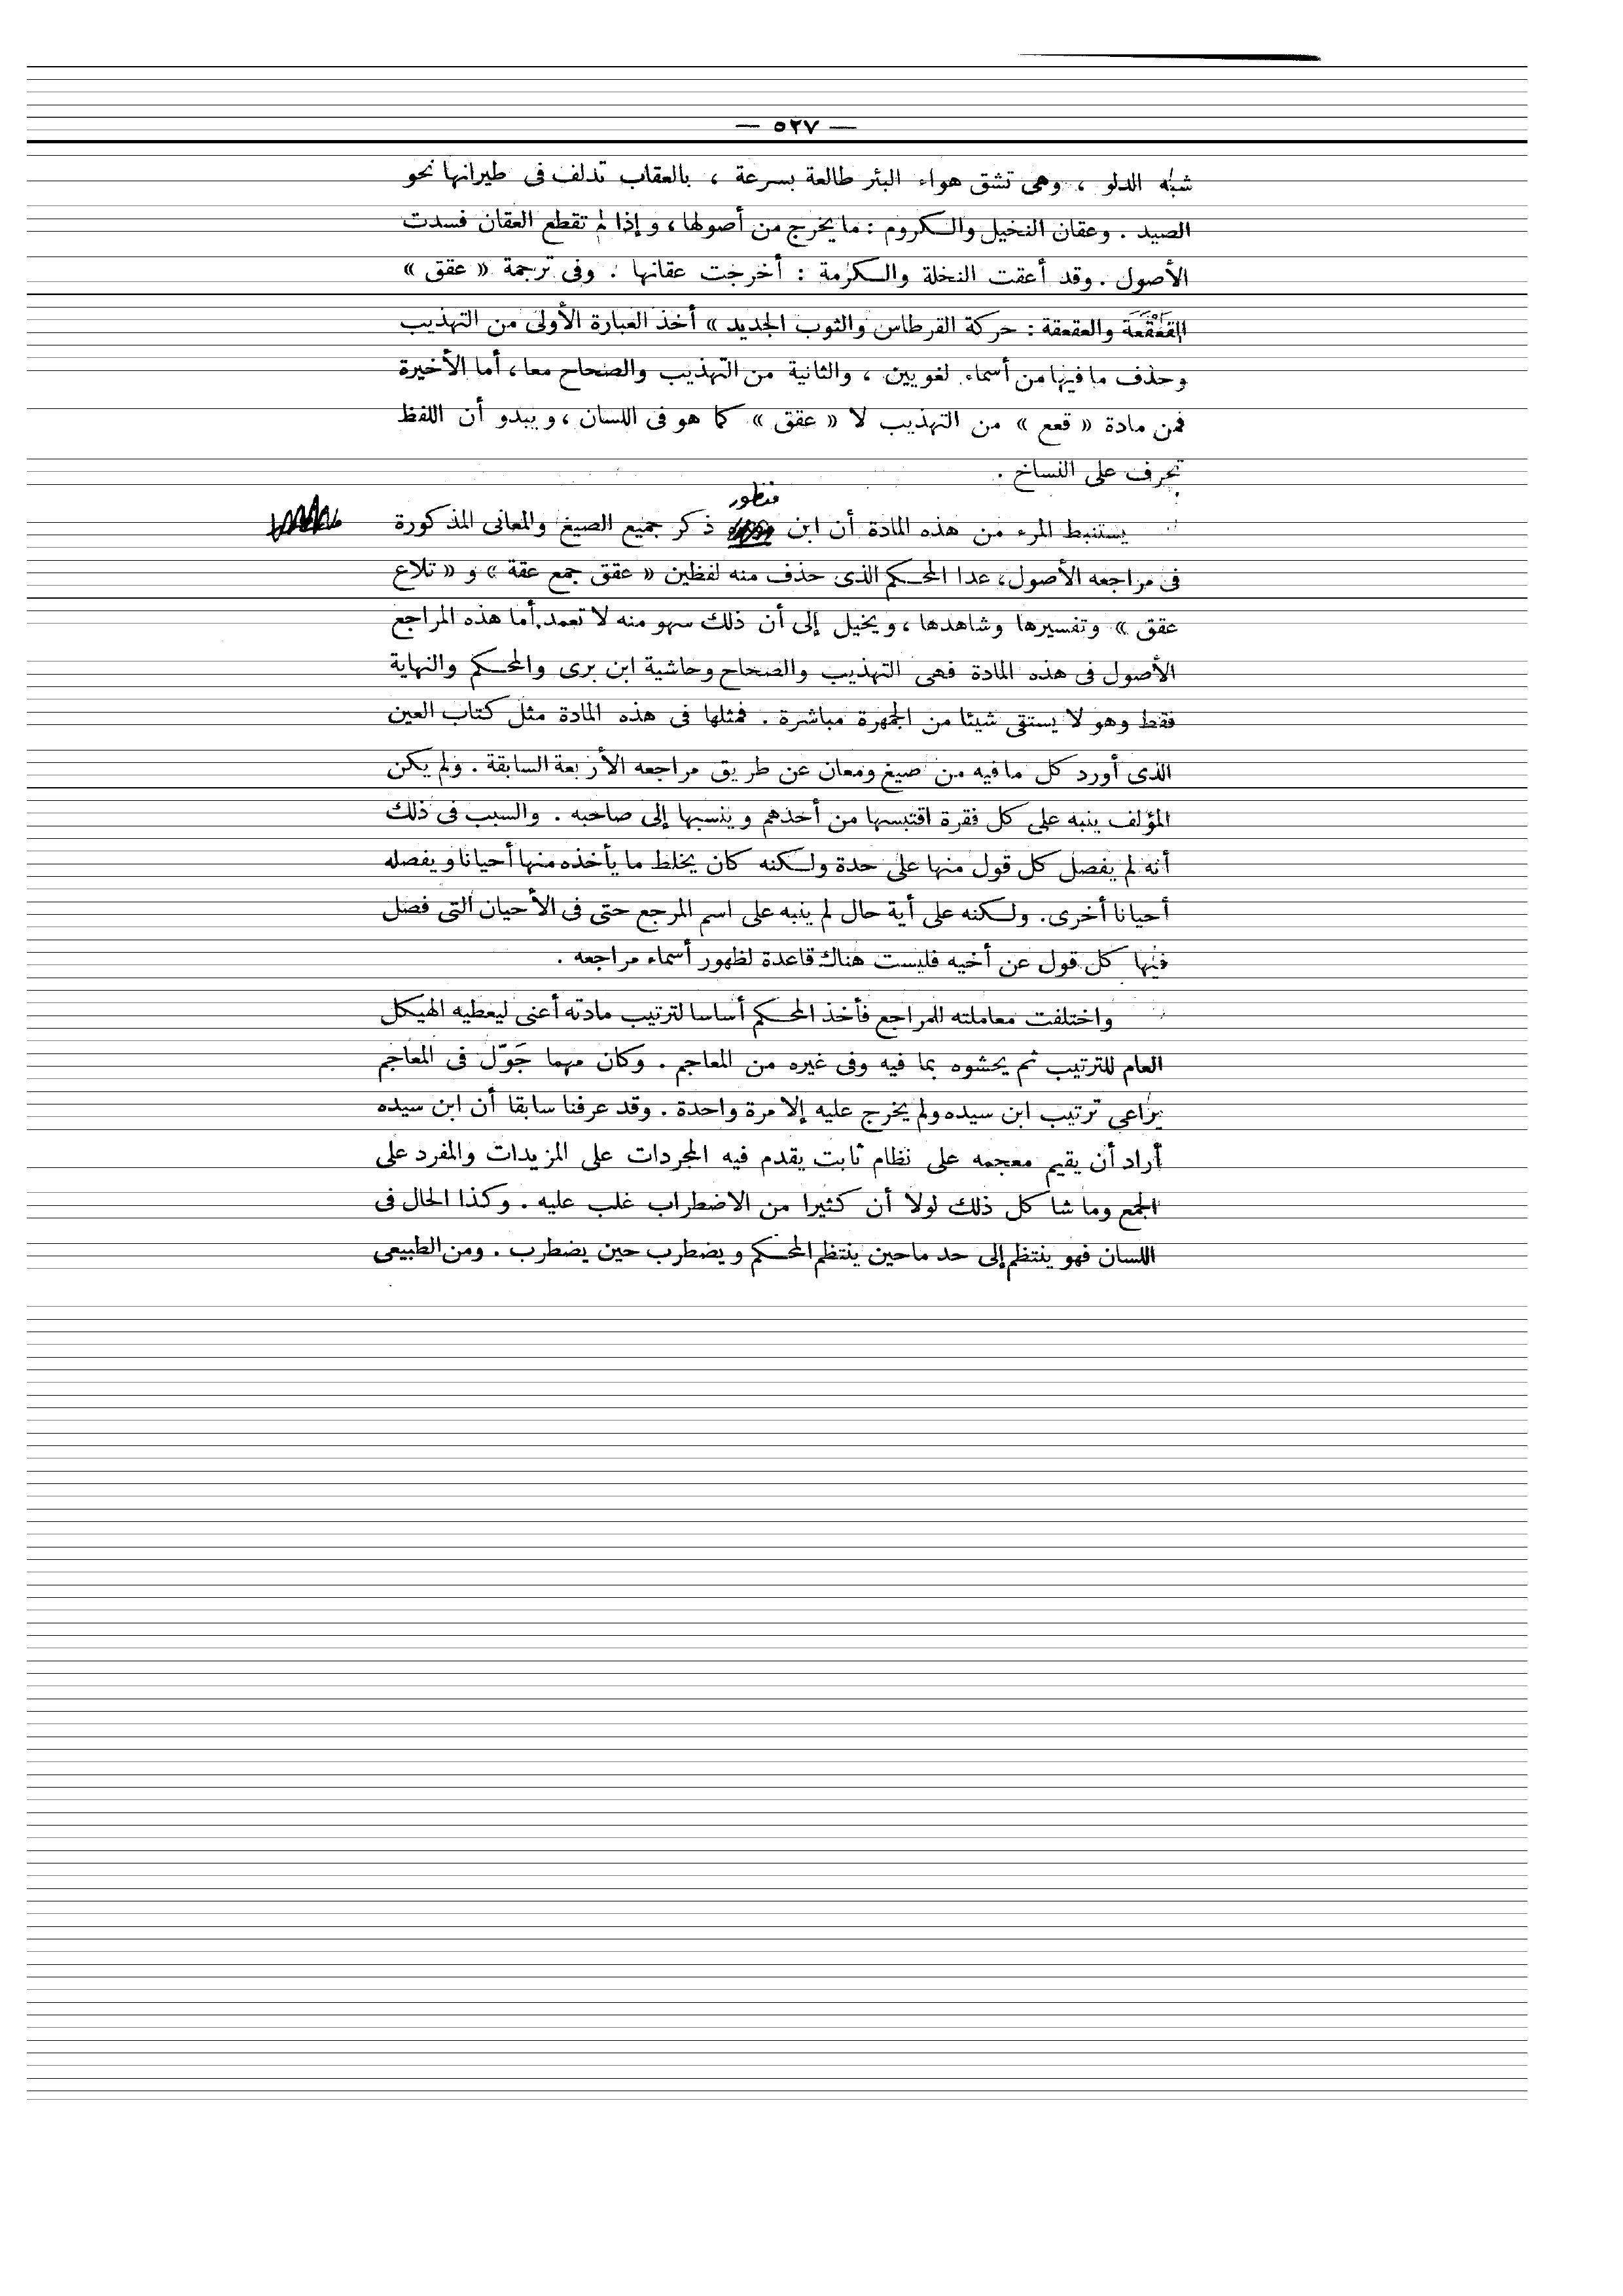 — ٥٢٧ —
شبّه الدلو ، وهى تشق هواء البئر طالعة بسرعة ، بالعقاب تدلف فى طيرانها نحو
الصيد . وعقان النخيل والكروم : ما يخرج من أصولها ، و إذا لم تقطع العقان فسدت
الأصول . وقد أعقت النخلة والكرمة : أخرجت عقانها . وفى ترجمة « عقق »
القَعْقَعَة والعقعقة : حركة القرطاس والثوب الجديد » أخذ العبارة الأولى من التهذيب
وحذف ما فيها من أسماء لغويين ، والثانية من التهذيب والصحاح معا ، أما الأخيرة
فمن مادة « قعع » من التهذيب لا « عقق » كما هو فى اللسان ، و يبدو أن اللفظ
تحرف على النساخ .
يستنبط المرء من هذه المادة أن ابن منظور ذكر جميع الصيغ والمعانى المذكورة
فى مراجعه الأصول ، عدا المحكم الذى حذف منه لفظين « عقق جمع عقة » و « تلاع
عقق » وتفسيرها وشاهدها ، و يخيل إلى أن ذلك سهو منه لا تعمد . أما هذه المراجع
الأصول فى هذه المادة فهى التهذيب والصحاح وحاشية ابن برى والمحكم والنهاية
فقط وهو لا يستقى شيئا من الجمهرة مباشرة . فمثلها فى هذه المادة مثل كتاب العين
الذى أورد كل ما فيه من صيغ ومعان عن طريق مراجعه الأربعة السابقة . ولم يكن
المؤلف ينبه على كل فقرة اقتبسها من أحدهم و ينسبها إلى صاحبه . والسبب فى ذلك
أنه لم يفصل كل قول منها على حدة ولكنه كان يخلط ما يأخذه منها أحيانا و يفصله
أحيانا أخرى . ولكنه على أية حال لم ينبه على اسم المرجع حتى فى الأحيان التى فصل
فيها كل قول عن أخيه فليست هناك قاعدة لظهور أسماء مراجعه .
واختلفت معاملته للمراجع فأخذ المحكم أساسا لترتيب مادته أعنى ليعطيه الهيكل
العام للترتيب ثم يحشوه بما فيه وفى غيره من المعاجم . وكان مهما جَوّل فى المعاجم
يراعى ترتيب ابن سيده ولم يخرج عليه إلا مرة واحدة . وقد عرفنا سابقا أن ابن سيده
أراد أن يقيم معجمه على نظام ثابت يقدم فيه المجردات على المزيدات والمفرد على
الجمع وما شاكل ذلك لولا أن كثيرا من الاضطراب غلب عليه . وكذا الحال فى
اللسان فهو ينتظم إلى حد ما حين ينتظم المحكم و يضطرب حين يضطرب . ومن الطبيعى